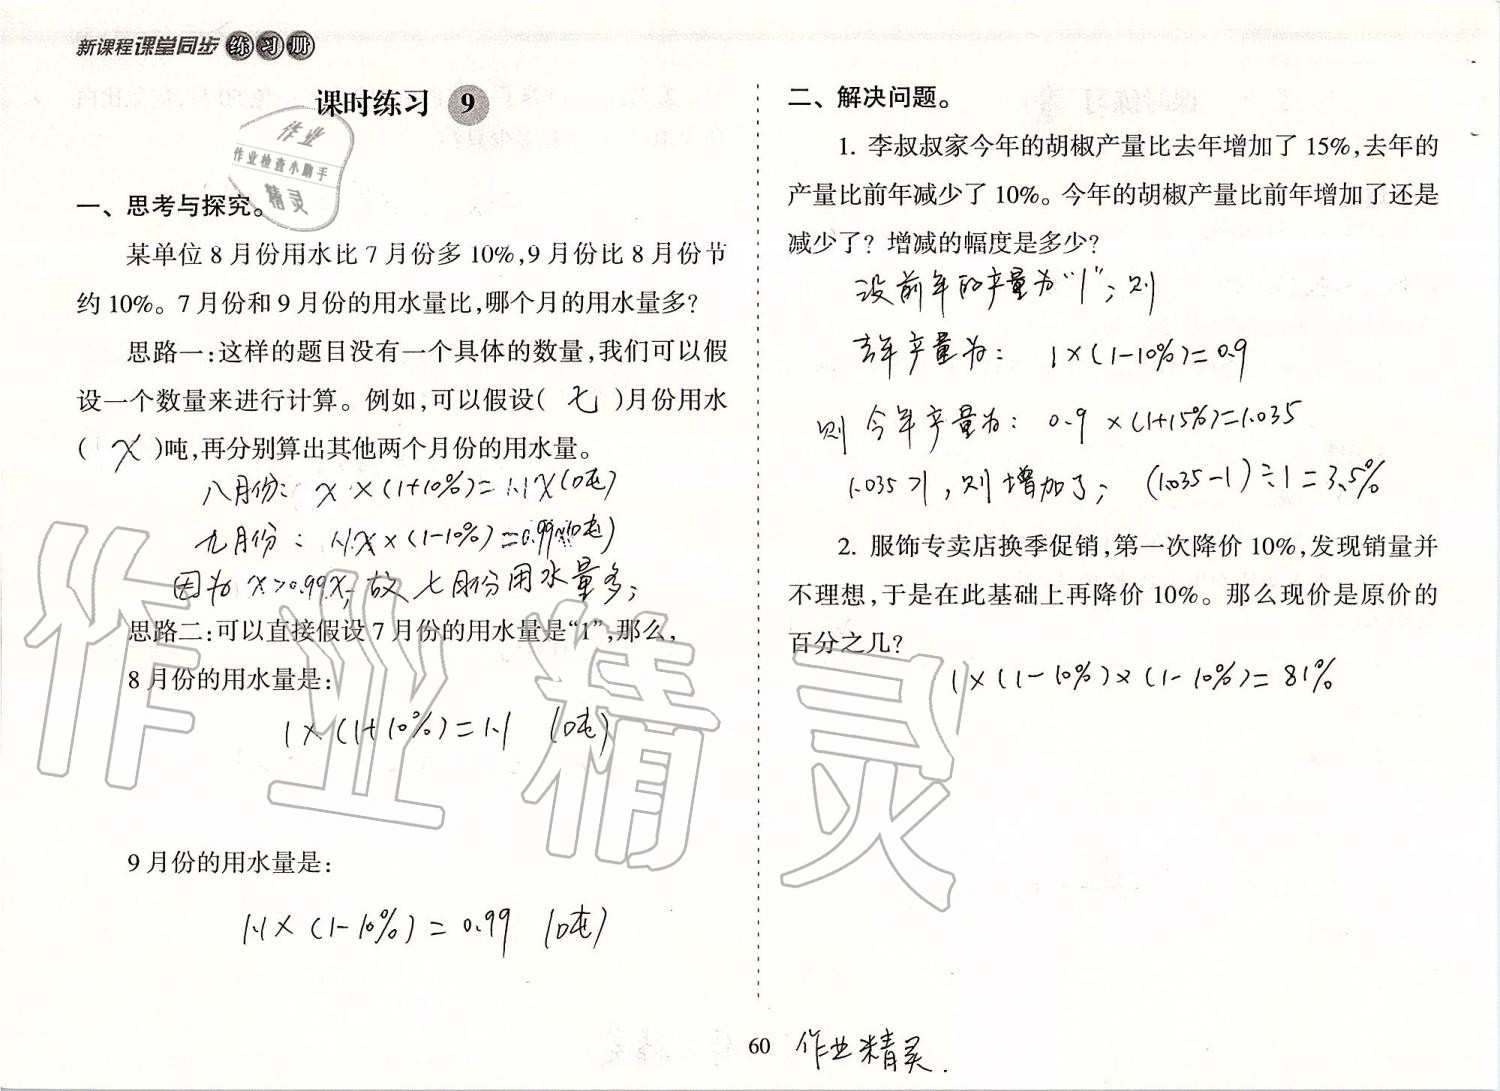 新课程课堂同步练习册
课时练习 9
作业
作业检查小助手
精灵
一、思考与探究。
某单位8月份用水比7月份多10%,9月份比8月份节
约10%。7月份和9月份的用水量比,哪个月的用水量多?
思路一:这样的题目没有一个具体的数量,我们可以假
设一个数量来进行计算。例如,可以假设( 七 )月份用水
( x )吨,再分别算出其他两个月份的用水量。
八月份: x×(1+10%)=1.1x(吨)
九月份: 1.1x×(1-10%)=0.99x(吨)
因为 x>0.99x,故七月份用水量多;
思路二:可以直接假设7月份的用水量是“1”,那么,
8月份的用水量是:
1×(1+10%)=1.1 (吨)
9月份的用水量是:
1.1×(1-10%)=0.99 (吨)
二、解决问题。
1. 李叔叔家今年的胡椒产量比去年增加了15%,去年的
产量比前年减少了10%。今年的胡椒产量比前年增加了还是
减少了?增减的幅度是多少?
设前年的产量为“1”;则
去年产量为: 1×(1-10%)=0.9
则今年产量为: 0.9×(1+15%)=1.035
1.035>1,则增加了; (1.035-1)÷1=3.5%
2. 服饰专卖店换季促销,第一次降价10%,发现销量并
不理想,于是在此基础上再降价10%。那么现价是原价的
百分之几?
1×(1-10%)×(1-10%)=81%
作业精灵
60
作业精灵.